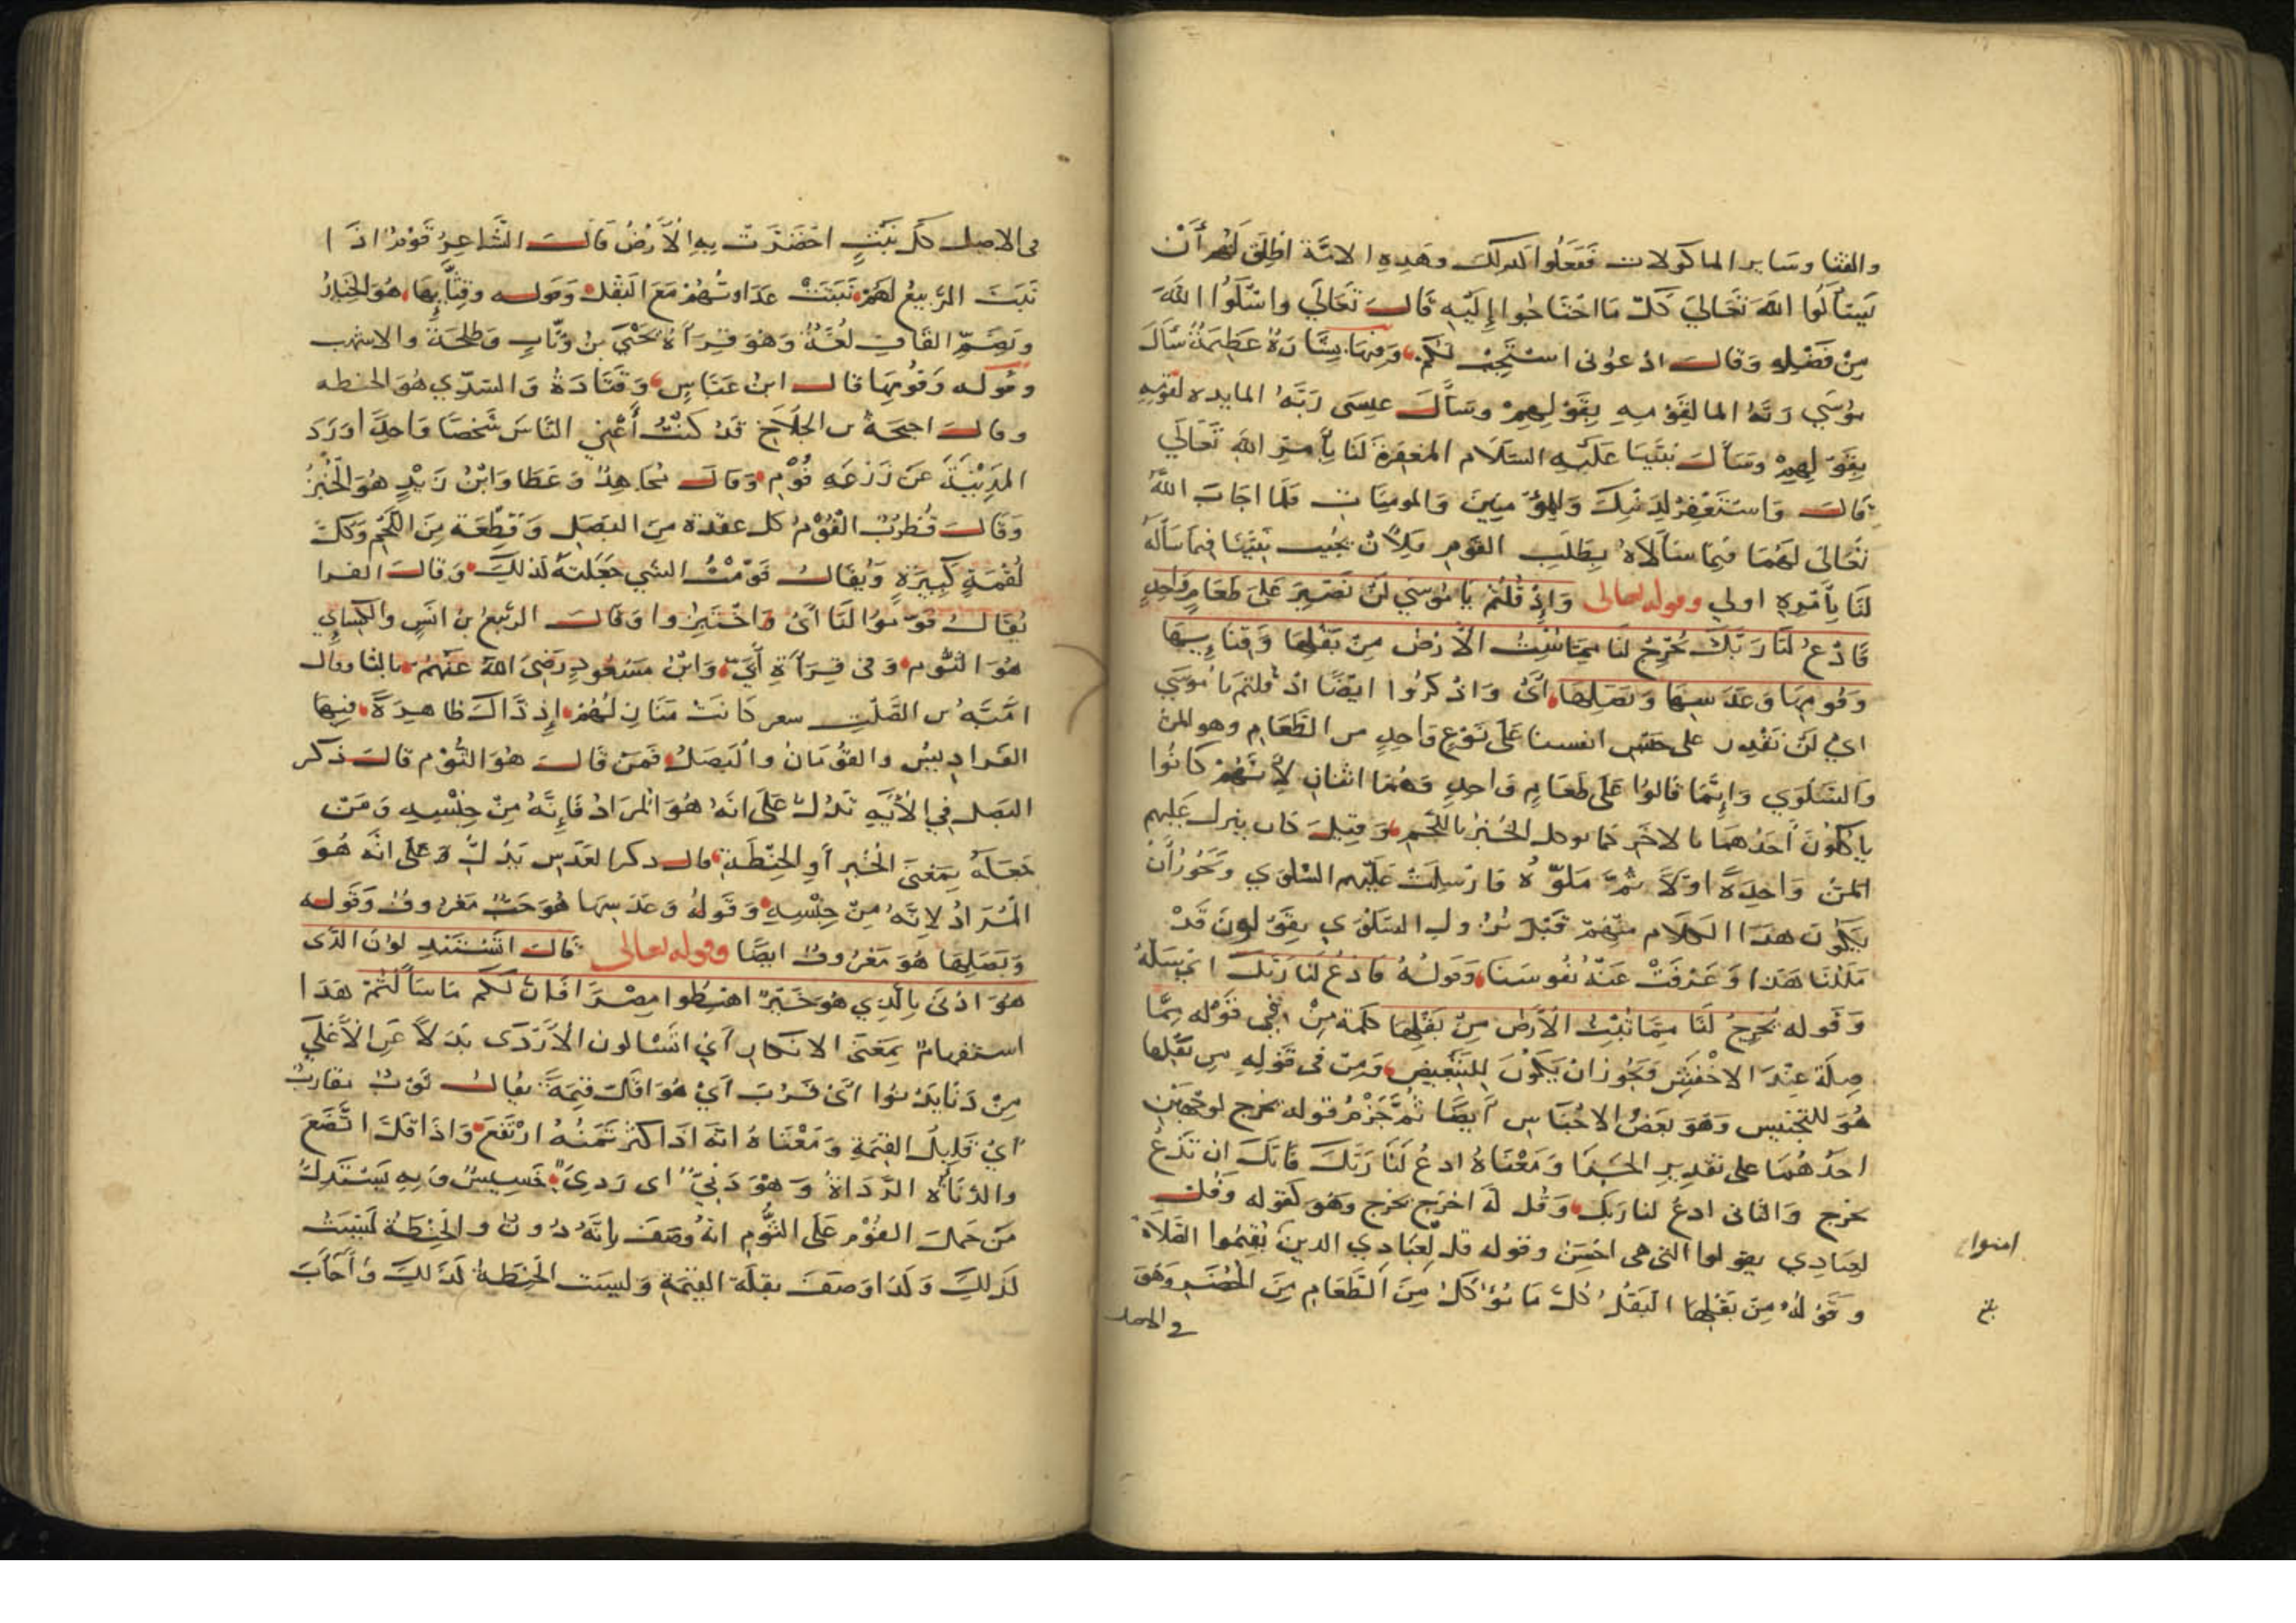 والقثا وساير الماكولات ففعلوا كذلك وهذه الامة اطلق لهم أن
يسألوا الله تعالى كل ما احتاجوا إليه قال تعالى واسئلوا الله
من فضله وقال ادعوني استجب لكم وفيها بشارة عظيمة سأل
موسى ربه الما لقومه بقولهم وسأل عيسى ربه المايده لقومه
بقولهم وسأل نبينا عليه السلام المغفرة لنا بأمر الله تعالى
قال واستغفر لذنبك وللمؤمنين والمومنات فلما اجاب الله
تعالى لهما فيما سألاه بطلب القوم فلأن يجيب نبينا فيما سأله
لنا بأمره اولى وقوله تعالى وإذ قلتم يا موسى لن نصبر على طعام واحد
فادع لنا ربك يخرج لنا مما تنبت الأرض من بقلها وقثايها
وفومها وعدسها وبصلها أي واذكروا ايضا اذ قلتم يا موسى
اي لن نقدر على حبس انفسنا على نوع واحد من الطعام وهو المن
والسلوي وإنما قالوا على طعام واحد وهما اثنان لأنهم كانوا
يأكلون أحدهما بالاخر كما يوكل الخبز باللحم وقيل كان ينزل عليهم
المن واحدة اولا ثم ملوه فارسلت عليهم السلوي ويجوز أن
يكون هذا الكلام منهم قبل نزول السلوي يقولون قد
مللنا هذا وعزفت عنه نفوسنا وقوله فادع لنا ربك اي سله
وقوله يخرج لنا مما تنبت الأرض من بقلها كلمة من في قوله مما
صلة عند الاخفش ويجوز ان يكون للتبعيض ومن في قوله من بقلها
هو للتجنيس وهو بعض الاجناس أيضا ثم جزم قوله يخرج لوجهين
احدهما على تقدير الجزا ومعناه ادع لنا ربك فانك ان تدع
يخرج والثاني ادع لنا ربك وقل له اخرج يخرج وهو كقوله وقل
لعبادي يقولوا التي هي احسن وقوله قل لعبادي الذين يقيموا الصلاة
امنوا
وقوله من بقلها البقل كل ما يؤكل من الطعام من الخضر وهو
في الاصل
في الاصل كل نبت اخضرت به الأرض قال الشاعر قوم اذا
نبت الربيع لهم نبتت عداوتهم مع البقل وقوله وقثايها هو الخيار
وبضم القاف لغة وهو قراءة يحيى بن وثاب وطلحة والاشهب
وقوله وفومها قال ابن عباس وقتادة والسدي هو الحنطه
وقال احيحة بن الجلاح قد كنت أغني الناس شخصا واحدا ورد
المدينة عن زرعه فوم وقال مجاهد وعطا وابن زيد هو الخبز
وقال قطرب الفوم كل عقدة من البصل وقطعة من اللحم وكل
لقمة كبيرة ويقال فومت الشي جعلته لذلك وقال الفرا
يقال فوموا لنا أي اختبزوا وقال الربيع بن انس والكسايي
هو الثوم وفي قراءة أبي وابن مسعود رضي الله عنهم بالثا وقال
امية بن الصلت شعر كانت منازلهم إذ ذاك ظاهرة فيها
الفراديس والفومان والبصل فمن قال هو الثوم قال ذكر
البصل في الأية تدل على انه هو المراد فإنه من جنسه ومن
جعله بمعنى الخبز أو الحنطة قال ذكر العدس يدل على انه هو
المراد لانه من جنسه وقوله وعدسها هو حب معروف وقوله
وبصلها هو معروف ايضا وقوله تعالى قال اتستبدلون الذى
هو ادنى بالذي هو خير اهبطوا مصرا فان لكم ما سألتم هذا
استفهام بمعنى الانكار أي اتسالون الأردى بدلا عن الأعلى
من دنا يدنوا أي قرب أي هو اقل قيمة يقال ثوب مقارب
أي قليل القيمة ومعناه انه اذا كثر ثمنه ارتفع واذا قل اتضع
والدناة الرداة وهو دني اى ردي خسيس وبه يستدل
من حمل الفوم على الثوم انه وصف بانه دون والحنطة ليست
لذلك ولذا وصف بقلة القيمة وليست الحنطة لذلك وأجاب